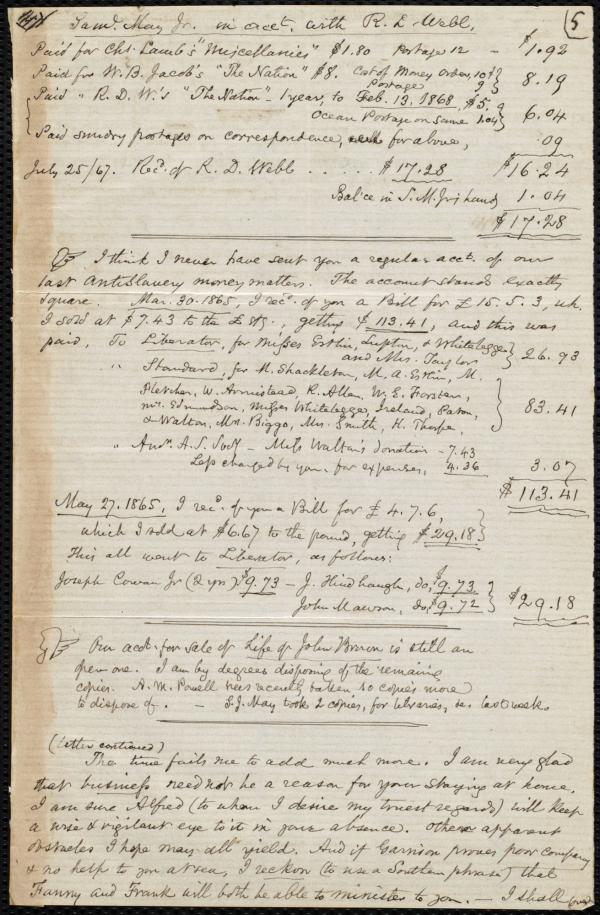 5
Saml. May Jr. in acct. with R. D. Webb.
Paid for Chs. Lamb's "Miscellanies" $1.80 Postage 12 — $1.92
Paid for W. B. Jacob's "The Nation" $8. Cost of Money Order, 10 } 8.19
Postage 9
Paid " R. D. W.'s "The Nation" – 1 year, to Feb. 13. 1868, $5. } 6.04
Ocean Postage on same 1.04
Paid sundry postages on correspondence, for above, .09
July 25/67. Recd. of R. D. Webb . . . . . $17.28 $16.24
Bal'ce in S. M. Jr's hands 1.04
$17.28
I think I never have sent you a regular acct. of our
last Antislavery money matters. The account stands exactly
square. Mar. 30. 1865, I recd. of you a Bill for £15. 5. 3, wh.
I sold at $7.43 to the £ stg., getting $113.41, and this was
paid, To Liberator, for Misses Estlin, Lupton, & Whitelegge } 26.93
and Mrs. Taylor
" Standard, for R. Shackleton, M. A. Estlin, M.
Fletcher, W. Armistead, R. Allen, W. E. Forster,
Mr. Edmundson, Misses Whitelegge, Ireland, Paton, } 83.41
& Walton, Mrs. Biggs, Mrs. Smith, H. Thorpe,
" Amn. A. S. Socy – Miss Walton's donation – 7.43
Less charged by you, for expenses, 4.36 3.07
$113.41
May 27. 1865, I recd. of you a Bill for £4. 7. 6,
which I sold at $6.67 to the pound, getting $29.18 }
This all went to Liberator, as follows:
Joseph Cowen Jr (2 yrs) $9.73 – J. Hindhaugh, do, $9.73 }
John Mawson, do, $9.72 } $29.18
Our acct. for sale of Life of John Brown is still an
open one. I am by degrees disposing of the remaining
copies. A. M. Powell has recently taken 10 copies more
to dispose of. — S. J. May took 2 copies, for libraries, last week.
(Letter continued)
The time fails me to add much more. I am very glad
that business need not be a reason for your staying at home.
I am sure Alfred (to whom I desire my truest regards) will keep
a wise & vigilant eye to it in your absence. Other apparent
obstacles I hope may all yield. And if Garrison proves poor company
& no help to you at sea, I reckon (to use a Southern phrase) that
Fanny and Frank will both be able to minister to you. — I shall (over